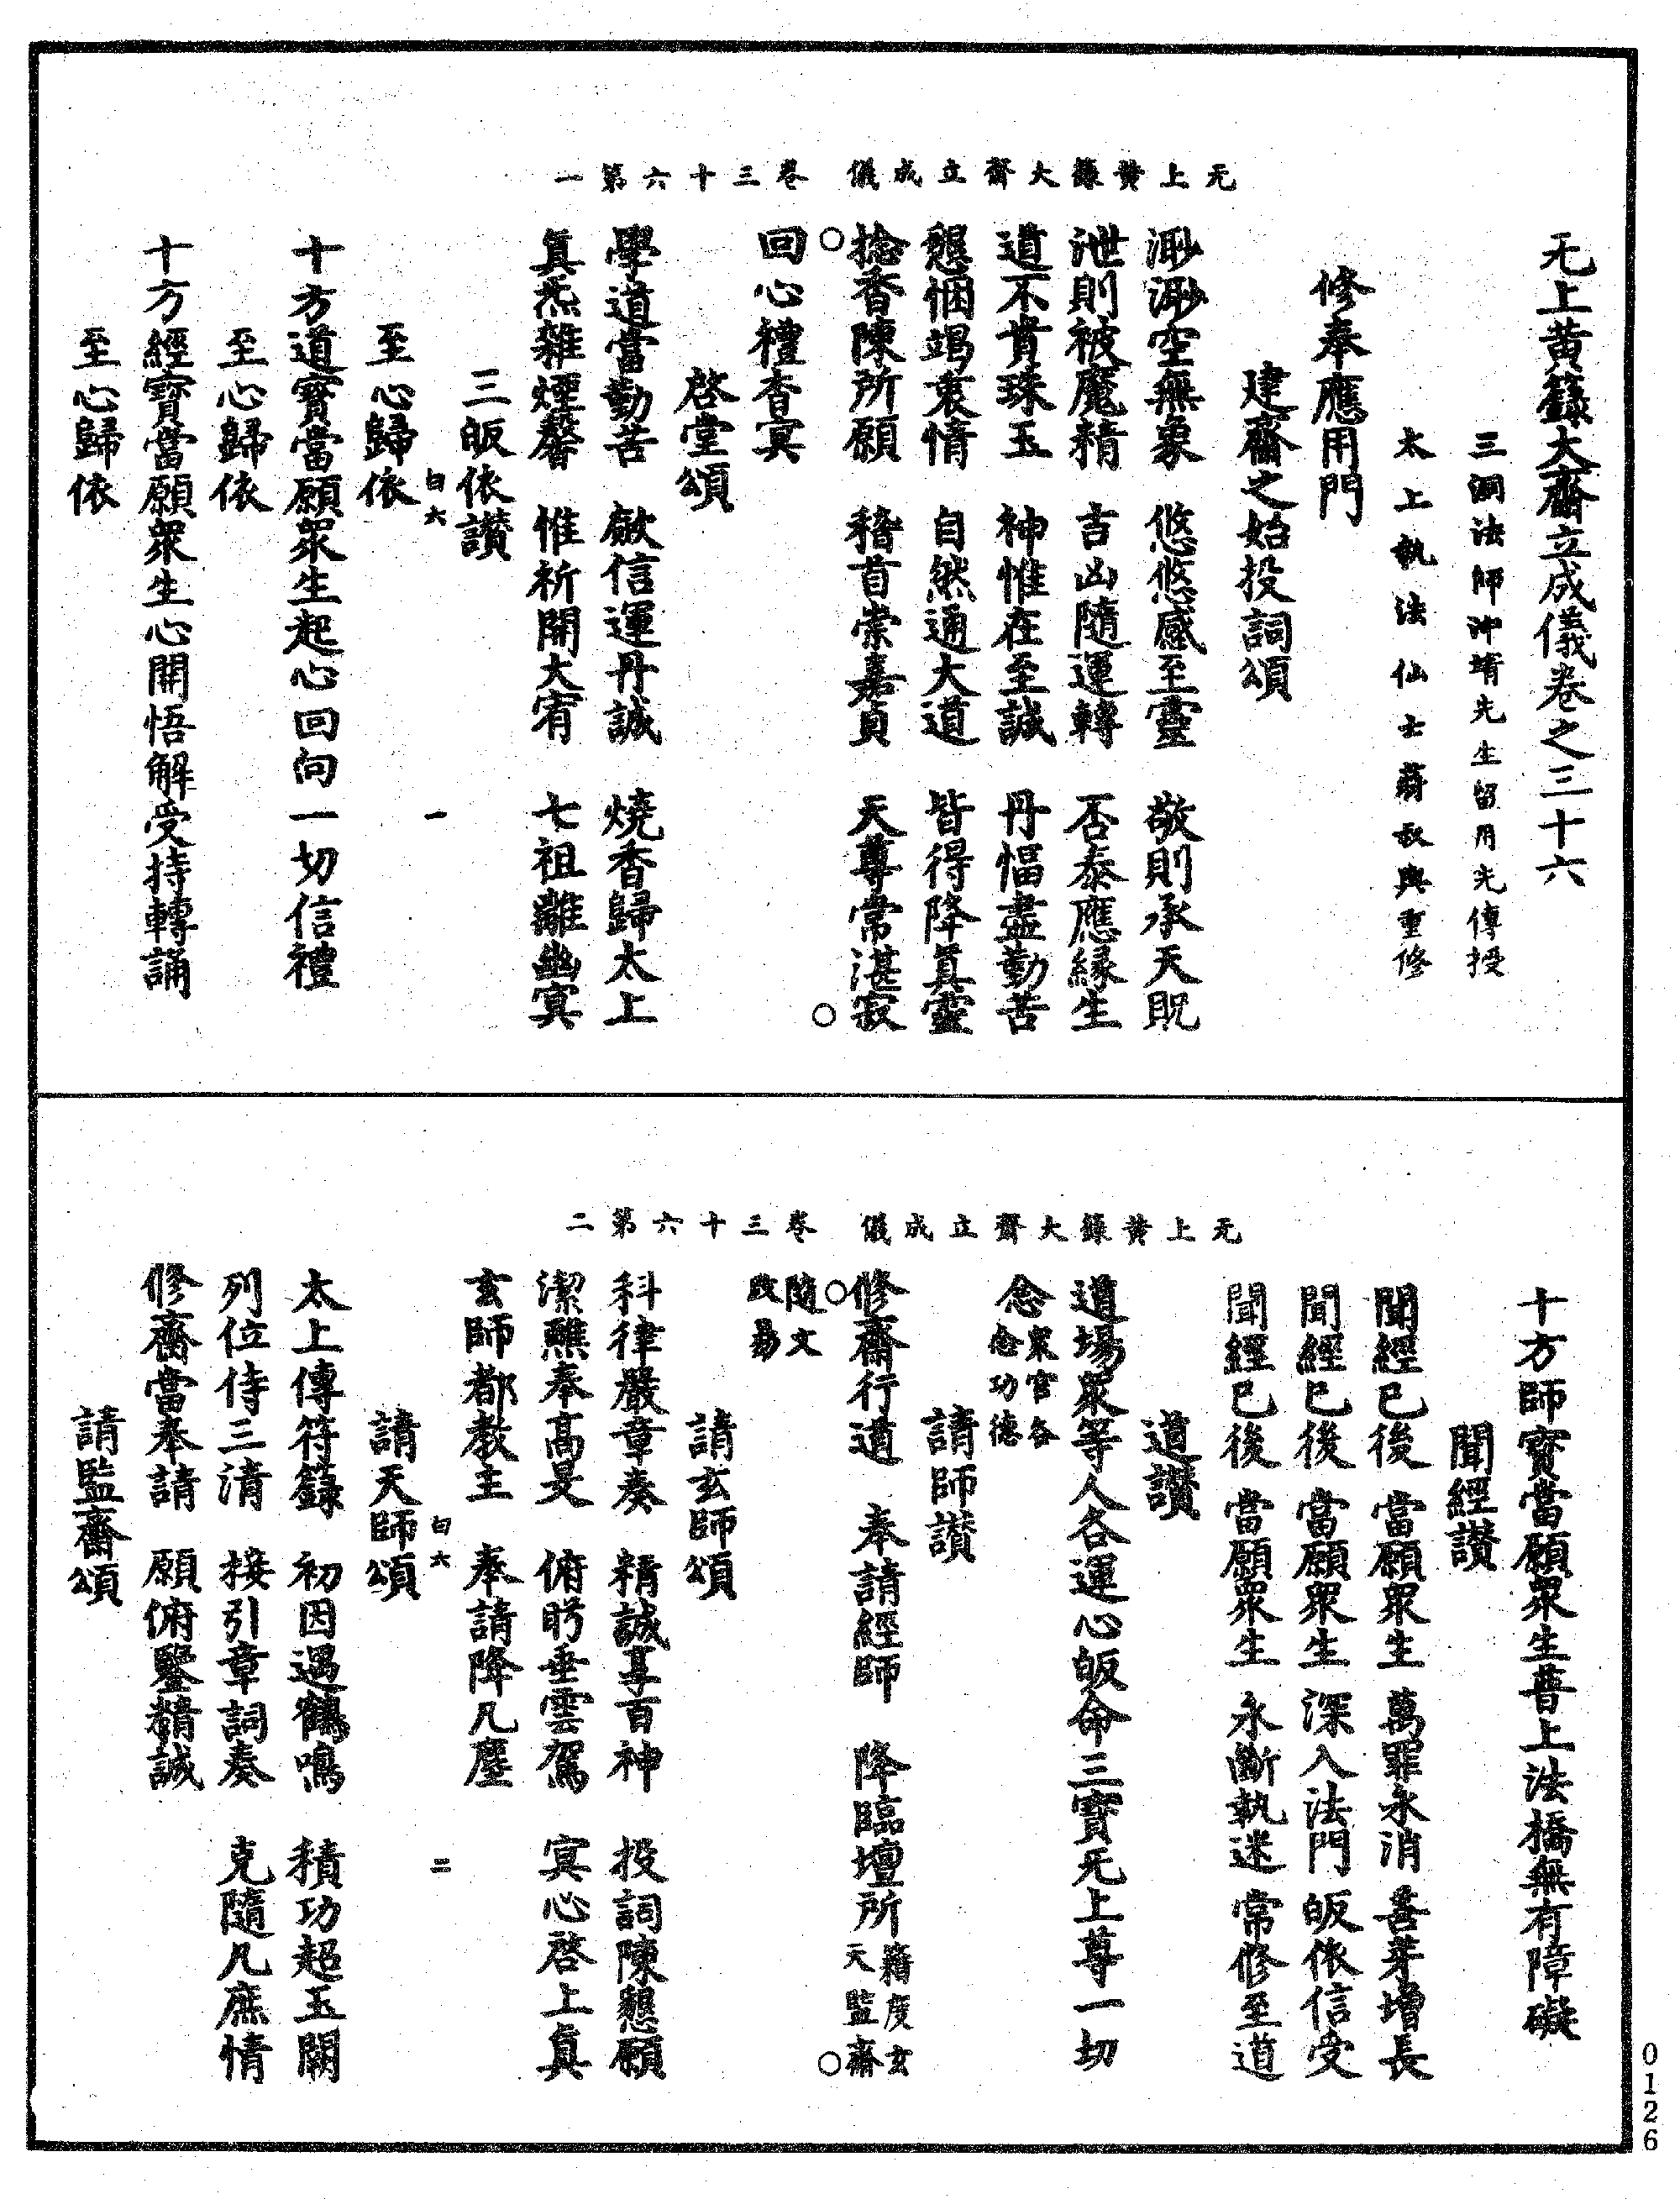 无上黃籙大齋立成儀　卷三十六第一
无上黃籙大齋立成儀卷之三十六
三洞法師沖靖先生留用光傳授
太上執法仙士蔣叔輿重修
修奉應用門
建齋之始投詞頌
渺渺空無象　悠悠感至靈　敬則承天貺
泄則被魔精　吉凶隨運轉　否泰應緣生
道不貴珠玉　神惟在至誠　丹愊盡勤苦
懇悃竭衷情　自然通大道　皆得降真靈
捻香陳所願　稽首崇嘉貞　天尊常湛寂
○回心禮杳冥○
啓堂頌
學道當勤苦　歘信運丹誠　燒香歸太上
真炁雜煙馨　惟祈開大宥　七祖離幽冥
三皈依讚
白六　一
至心歸依
十方道寶當願眾生起心回向一切信禮
至心歸依
十方經寶當願眾生心開悟解受持轉誦
至心歸依
无上黃籙大齋立成儀　卷三十六第二
十方師寶當願眾生普上法橋無有障礙
聞經讚
聞經已後　當願眾生　萬罪永消　善芽增長
聞經已後　當願眾生　深入法門　皈依信受
聞經已後　當願眾生　永斷執迷　常修至道
道讚
道場眾等人各運心皈命三寶无上尊一切
念眾官各念念功德
請師讚
修齋行道　奉請經師　降臨壇所籍度玄天監齋○
○隨文改易
請玄師頌
科律嚴章奏　精誠享百神　投詞陳懇願
潔醮奉高旻　俯盻垂雲駕　冥心啓上真
玄師都教主　奉請降凡塵
白六　二
請天師頌
太上傳符籙　初因遇鶴鳴　積功超玉闕
列位侍三清　接引章詞奏　克隨凡庶情
修齋當奉請　願俯鑒精誠
請監齋頌
0126